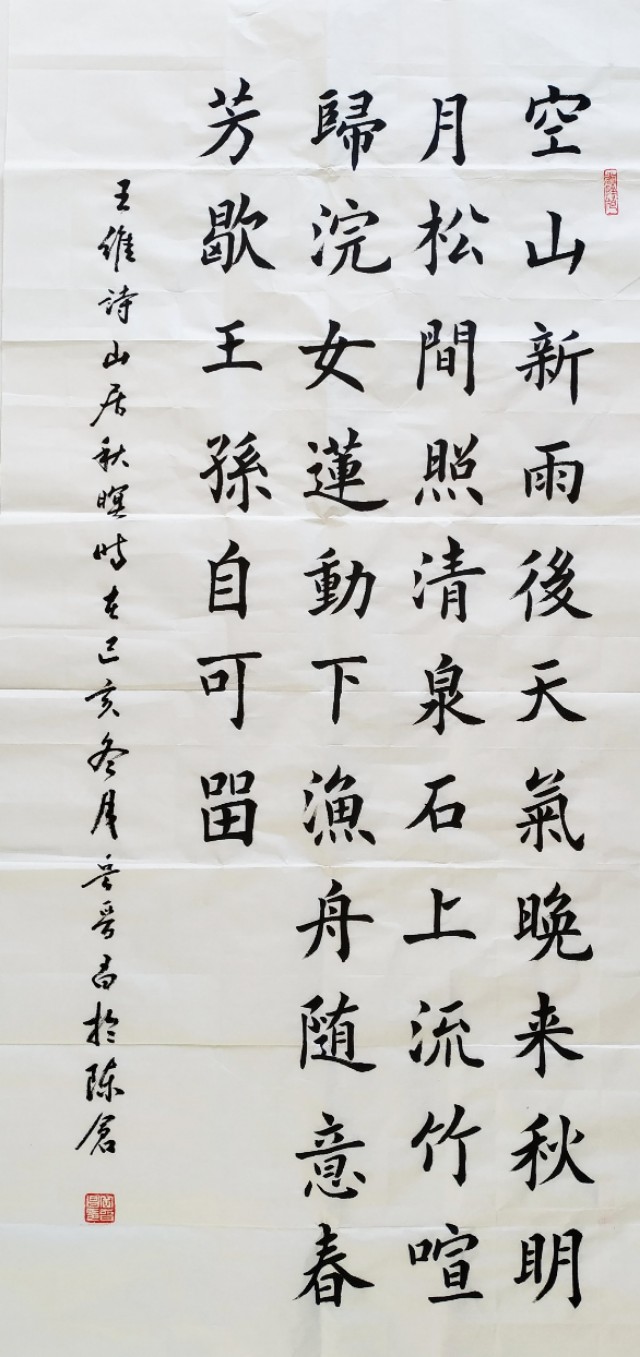 空山新雨後天氣晚来秋明
月松間照清泉石上流竹喧
歸浣女蓮動下漁舟随意春
芳歇王孫自可留
王維詩山居秋暝時在己亥冬月晉昌於陳倉